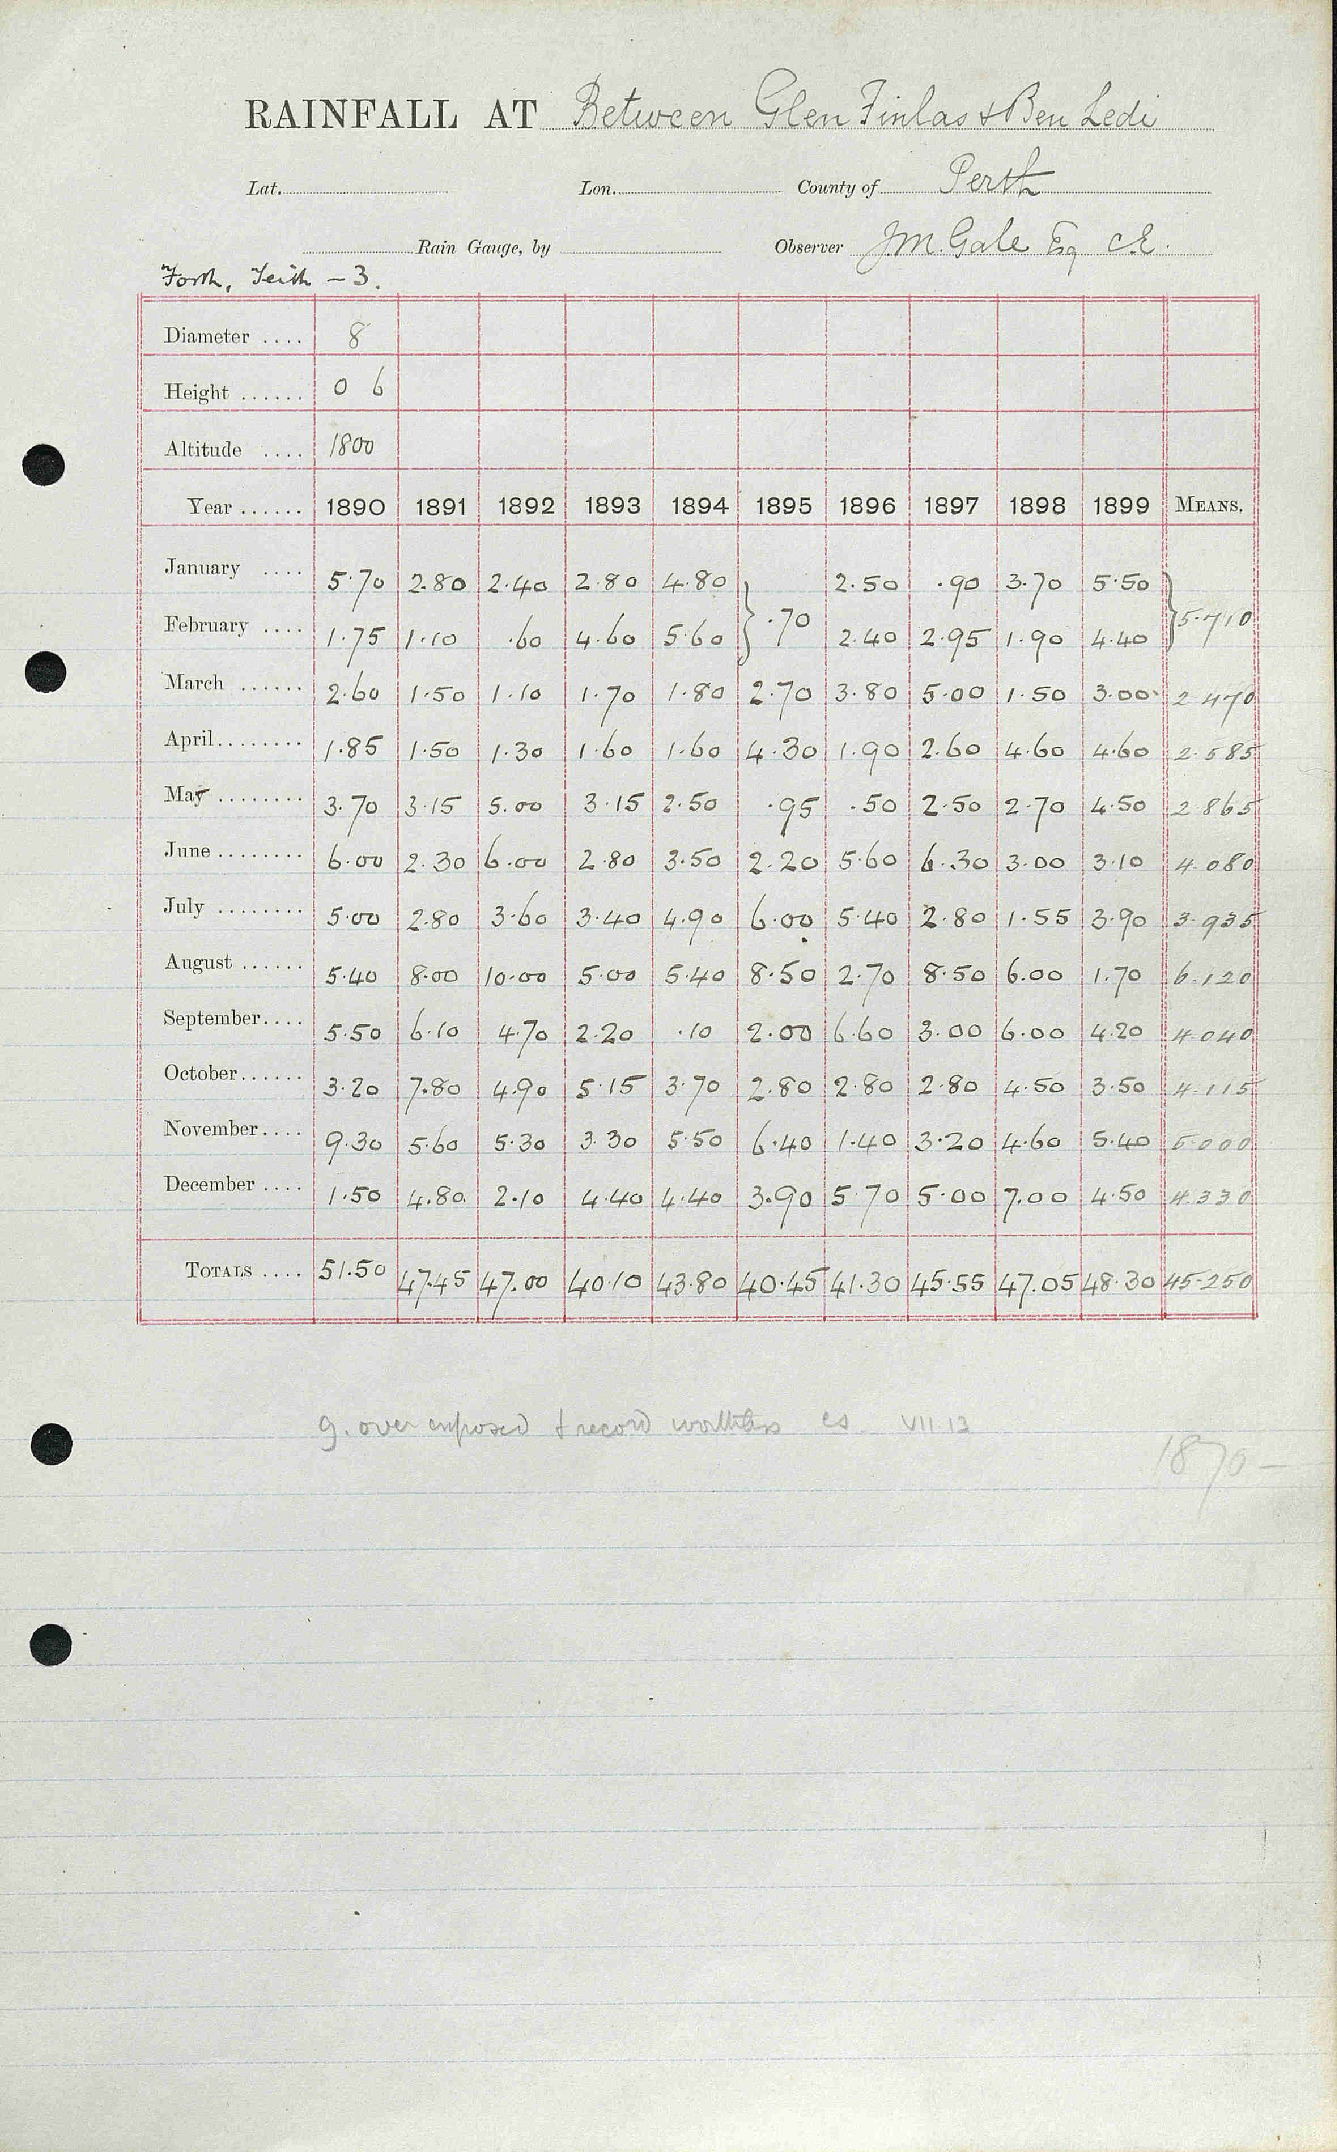 RAINFALL AT Between Glen Finlas & Ben Ledi
Lat. Lon. County of Perth
Rain Gauge, by Observer J.M. Gale Esq C.E.
Forth, Teith - 3.
Diameter .... 8
Height ...... 0 6
Altitude .... 1800
Year ...... 1890 1891 1892 1893 1894 1895 1896 1897 1898 1899 MEANS.
January .... 5.70 2.80 2.40 2.80 4.80 2.50 .90 3.70 5.50
} .70 } 5.710
February .... 1.75 1.10 .60 4.60 5.60 2.40 2.95 1.90 4.40
March ...... 2.60 1.50 1.10 1.70 1.80 2.70 3.80 5.00 1.50 3.00 2.470
April........ 1.85 1.50 1.30 1.60 1.60 4.30 1.90 2.60 4.60 4.60 2.585
May ........ 3.70 3.15 5.00 3.15 2.50 .95 .50 2.50 2.70 4.50 2.865
June ........ 6.00 2.30 6.00 2.80 3.50 2.20 5.60 6.30 3.00 3.10 4.080
July ........ 5.00 2.80 3.60 3.40 4.90 6.00 5.40 2.80 1.55 3.90 3.935
August ...... 5.40 8.00 10.00 5.00 5.40 8.50 2.70 8.50 6.00 1.70 6.120
September.... 5.50 6.10 4.70 2.20 .10 2.00 6.60 3.00 6.00 4.20 4.040
October...... 3.20 7.80 4.90 5.15 3.70 2.80 2.80 2.80 4.50 3.50 4.115
November.... 9.30 5.60 5.30 3.30 5.50 6.40 1.40 3.20 4.60 5.40 5.000
December .... 1.50 4.80 2.10 4.40 4.40 3.90 5.70 5.00 7.00 4.50 4.330
TOTALS .... 51.50 47.45 47.00 40.10 43.80 40.45 41.30 45.55 47.05 48.30 45.250
g. over exposed & record worthless cs VII.13
1870-